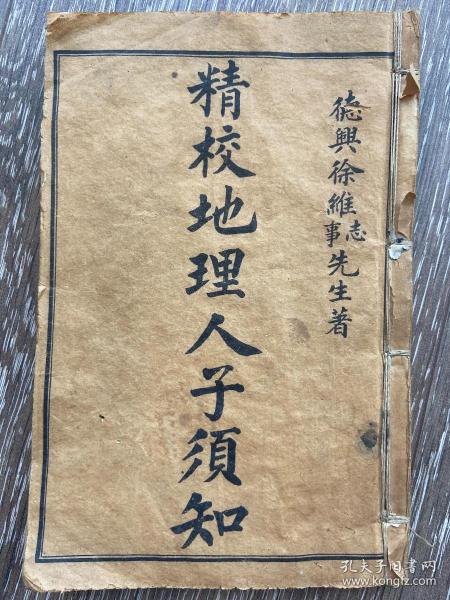 德興徐維志事先生著
精校地理人子須知
孔夫子旧书网
www.kongfz.com